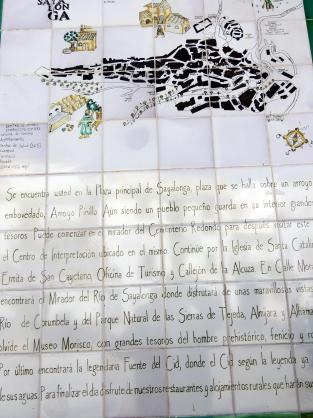 SA
ON
GA
Se encuentra usted en la Plaza principal de Sayalonga, plaza que se halla sobre un arroyo
embovedado, Arroyo Pinillo. Aún siendo un pueblo pequeño guarda en su interior grandes
tesoros. Puede comenzar en el mirador del Cementerio Redondo para después visitar este
el Centro de Interpretación ubicado en el mismo. Continúe por la Iglesia de Santa Catalina
Ermita de San Cayetano, Oficina de Turismo y Callejón de la Alcuza. En Calle
encontrará el Mirador del Río de Sayalonga donde disfrutará de unas maravillosas vistas
Río de Corumbela y del Parque Natural de las Sierras de Tejeda, Almijara y Alhama
olvide el Museo Morisco, con grandes tesoros del hombre prehistórico, fenicio y
Por último encontrará la legendaria Fuente del Cid, donde el Cid según la leyenda ya
de sus aguas. Para finalizar el día disfrute de nuestros restaurantes y alojamientos rurales que harán su